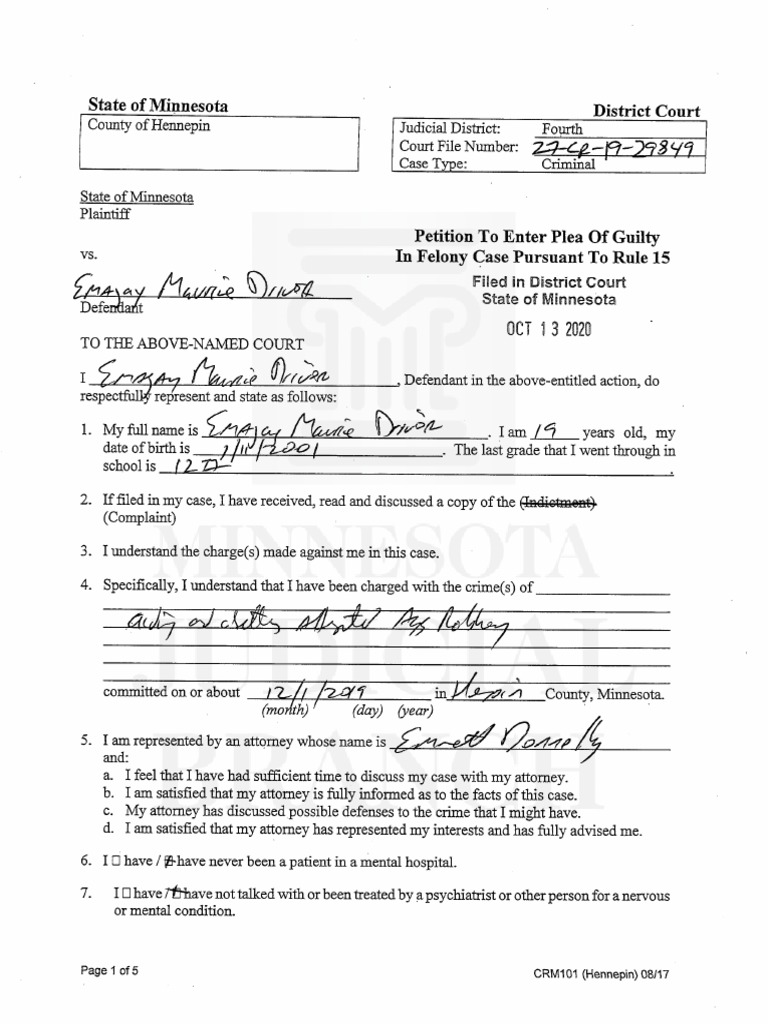 State of Minnesota
District Court
County of Hennepin
Judicial District: Fourth
Court File Number: 27-CR-19-29849
Case Type: Criminal
State of Minnesota
Plaintiff
Petition To Enter Plea Of Guilty
vs.
In Felony Case Pursuant To Rule 15
Filed in District Court
Emajay Maurie Driver
State of Minnesota
Defendant
OCT 13 2020
TO THE ABOVE-NAMED COURT
I Emajay Maurie Driver, Defendant in the above-entitled action, do
respectfully represent and state as follows:
1. My full name is Emajay Maurie Driver. I am 19 years old, my
date of birth is 2001. The last grade that I went through in
school is 12.
2. If filed in my case, I have received, read and discussed a copy of the (Indictment)
(Complaint)
3. I understand the charge(s) made against me in this case.
4. Specifically, I understand that I have been charged with the crime(s) of
Aiding and abetting attempted Agg Robbery
committed on or about 12/1/2019 in Henepin County, Minnesota.
(month) (day) (year)
5. I am represented by an attorney whose name is Emmett Donnelly
and:
a. I feel that I have had sufficient time to discuss my case with my attorney.
b. I am satisfied that my attorney is fully informed as to the facts of this case.
c. My attorney has discussed possible defenses to the crime that I might have.
d. I am satisfied that my attorney has represented my interests and has fully advised me.
6. I ☐ have / ☐ have never been a patient in a mental hospital.
7. I ☐ have / ☐ have not talked with or been treated by a psychiatrist or other person for a nervous
or mental condition.
MINNESOTA
JUDICIAL
BRANCH
Page 1 of 5
CRM101 (Hennepin) 08/17